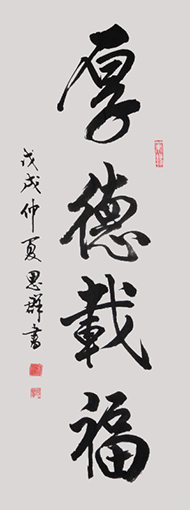 厚德載福
戊戌仲夏思群書